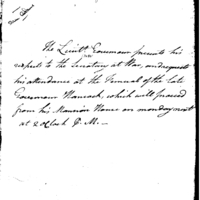 The Lieut. Governour presents his
respects to the Secretary at War, and requests
his attendance at the Funeral of the late
Governour Hancock, which will proceed
from his Mansion House on monday next
at 2 oClock P. M.—